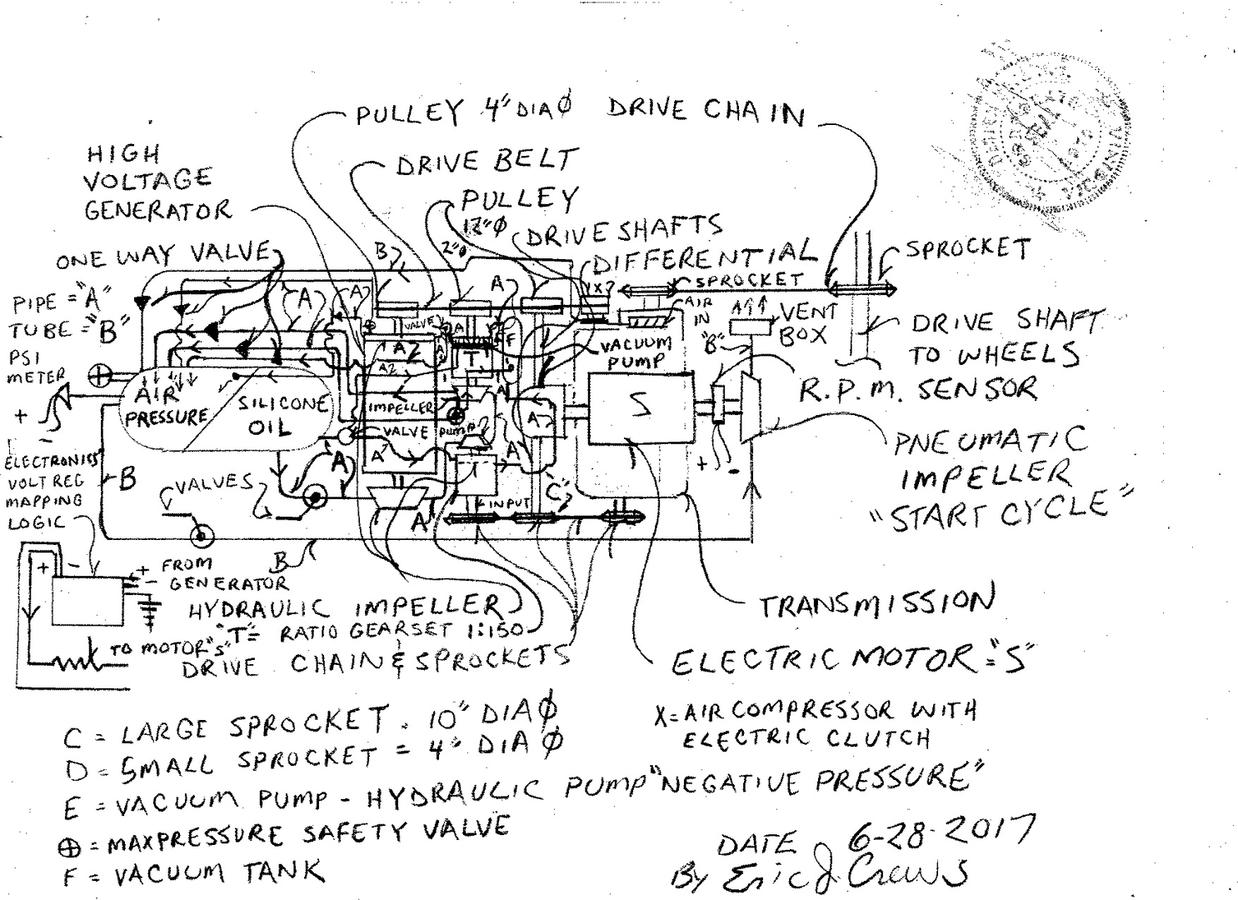 PULLEY 4" DIA Ø
DRIVE CHAIN
HIGH
VOLTAGE
GENERATOR
DRIVE BELT
PULLEY
12"Ø
2"Ø
DRIVE SHAFTS
DIFFERENTIAL
SPROCKET
SPROCKET
ONE WAY VALVE
B
A
A
A
PIPE = "A"
TUBE = "B"
PSI
METER
+
-
AIR
PRESSURE
SILICONE
OIL
VALVE
A
A
T
F
IMPELLER
PUMP
VALVE
A
A
A
AIR
IN
VACUUM
PUMP
S
"B"
VENT
BOX
DRIVE SHAFT
TO WHEELS
R.P.M. SENSOR
+ -
PNEUMATIC
IMPELLER
"START CYCLE"
ELECTRONICS
VOLT REG
MAPPING
LOGIC
B
VALVES
A
A
INPUT
"C"
B
+ -
+
-
FROM
GENERATOR
HYDRAULIC IMPELLER
"T" = RATIO GEARSET 1:150
TO MOTOR "S"
DRIVE CHAIN & SPROCKETS
TRANSMISSION
ELECTRIC MOTOR = "S"
X = AIR COMPRESSOR WITH
ELECTRIC CLUTCH
C = LARGE SPROCKET = 10" DIA Ø
D = SMALL SPROCKET = 4" DIA Ø
E = VACUUM PUMP - HYDRAULIC PUMP "NEGATIVE PRESSURE"
⊕ = MAXPRESSURE SAFETY VALVE
F = VACUUM TANK
DATE 6-28-2017
By Eric J Crews